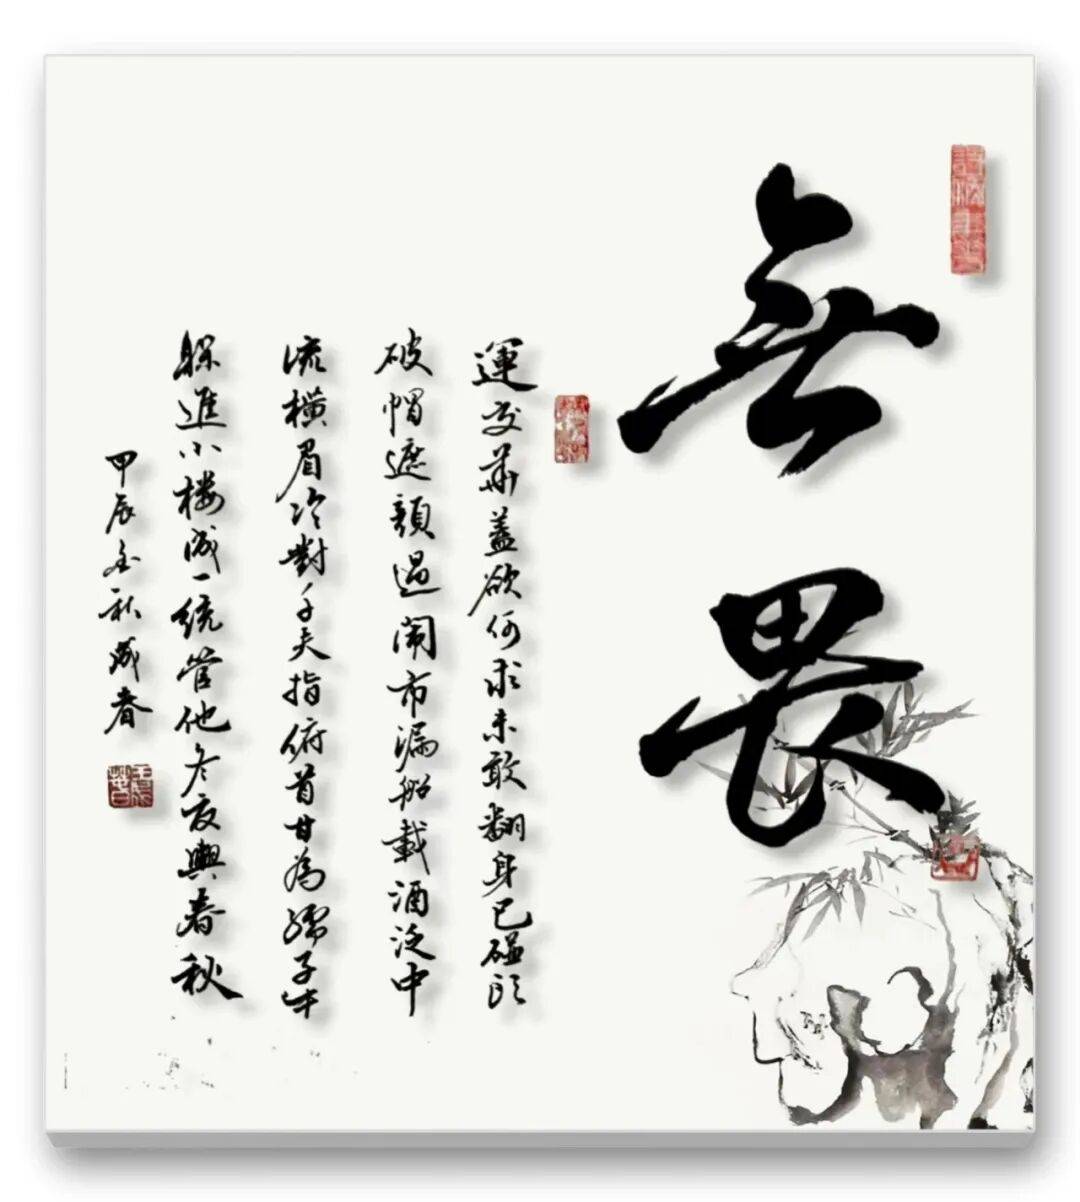 無畏
運交華蓋欲何求未敢翻身已碰頭
破帽遮顏過鬧市漏船載酒泛中
流橫眉冷對千夫指俯首甘為孺子牛
躲進小楼成一統管他冬夏與春秋
甲辰金秋春